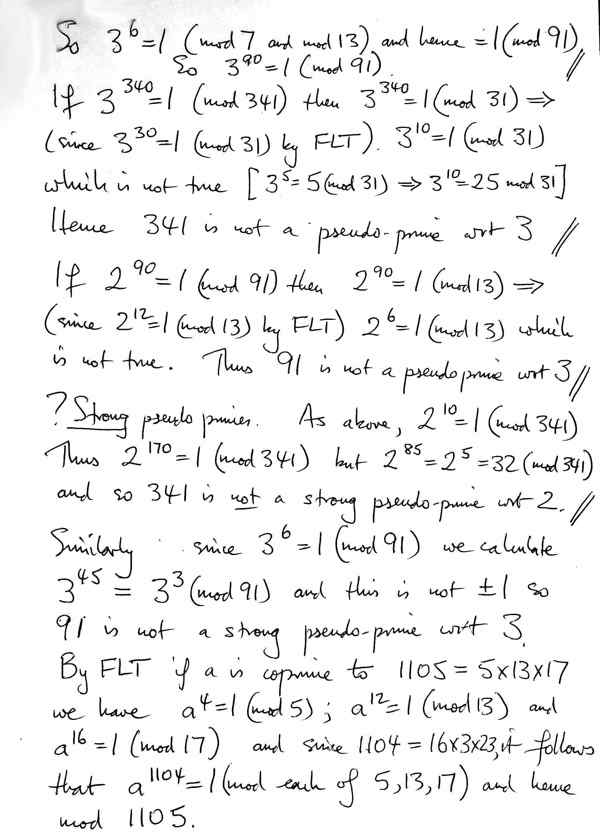 So 3^6=1 (mod 7 and mod 13) and hence =1(mod 91)
So 3^90=1 (mod 91). //
If 3^340=1 (mod 341) then 3^340=1(mod 31) ⇒
(since 3^30=1 (mod 31) by FLT). 3^10=1 (mod 31)
which is not true [3^5=5(mod 31) ⇒ 3^10=25 mod 31]
Hence 341 is not a pseudo-prime wrt 3 //
If 2^90=1 (mod 91) then 2^90=1 (mod 13) ⇒
(since 2^12=1(mod 13) by FLT) 2^6=1(mod 13) which
is not true. Thus 91 is not a pseudoprime wrt 3 //
? Strong pseudo primes. As above, 2^10=1(mod 341)
Thus 2^170=1 (mod 341) but 2^85=2^5=32 (mod 341)
and so 341 is not a strong pseudo-prime wrt 2. //
Similarly since 3^6=1 (mod 91) we calculate
3^45 = 3^3(mod 91) and this is not ±1 so
91 is not a strong pseudo-prime wrt 3.
By FLT if a is coprime to 1105=5×13×17
we have a^4=1(mod 5); a^12=1(mod 13) and
a^16=1(mod 17) and since 1104=16×3×23, it follows
that a^1104=1(mod each of 5,13,17) and hence
mod 1105.